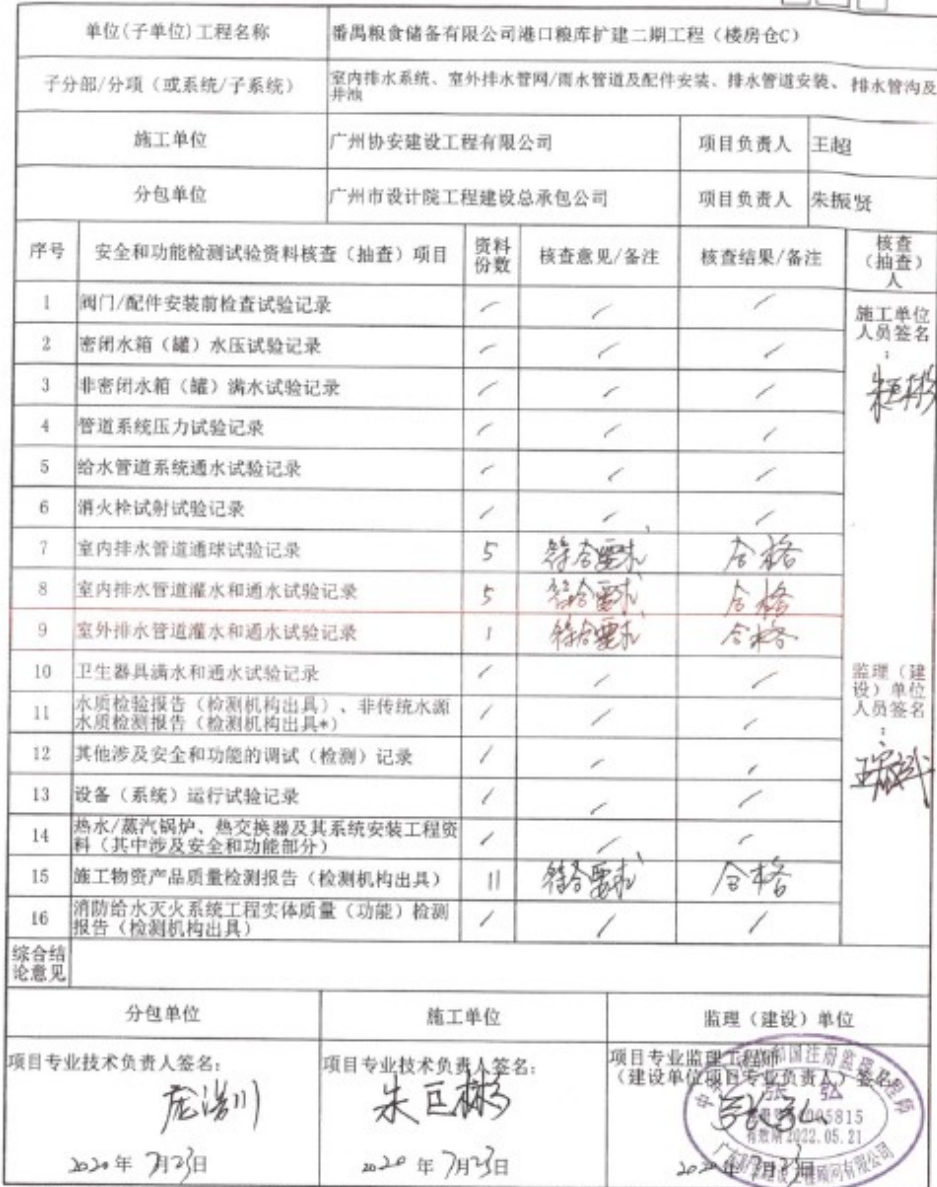 单位(子单位)工程名称
番禺粮食储备有限公司港口粮库扩建二期工程（楼房仓C）
子分部/分项（或系统/子系统）
室内排水系统、室外排水管网/雨水管道及配件安装、排水管道安装、排水管沟及
井池
施工单位
广州协安建设工程有限公司
项目负责人
王超
分包单位
广州市设计院工程建设总承包公司
项目负责人
朱振贤
序号
安全和功能检测试验资料核查（抽查）项目
资料
份数
核查意见/备注
核查结果/备注
核查
（抽查）
人
1 阀门/配件安装前检查试验记录 / / /
施工单位
人员签名
：
朱巨彬
2 密闭水箱（罐）水压试验记录 / / /
3 非密闭水箱（罐）满水试验记录 / / /
4 管道系统压力试验记录 / / /
5 给水管道系统通水试验记录 / / /
6 消火栓试射试验记录 / / /
7 室内排水管道通球试验记录 5 符合要求 合格
8 室内排水管道灌水和通水试验记录 5 符合要求 合格
9 室外排水管道灌水和通水试验记录 1 符合要求 合格
10 卫生器具满水和通水试验记录 / / /
监理（建
设）单位
人员签名
：
11 水质检验报告（检测机构出具）、非传统水源
水质检测报告（检测机构出具*） / / /
12 其他涉及安全和功能的调试（检测）记录 / / /
13 设备（系统）运行试验记录 / / /
14 热水/蒸汽锅炉、热交换器及其系统安装工程资
料（其中涉及安全和功能部分） / / /
15 施工物资产品质量检测报告（检测机构出具） 11 符合要求 合格
16 消防给水灭火系统工程实体质量（功能）检测
报告（检测机构出具） / / /
综合结
论意见
分包单位
施工单位
监理（建设）单位
项目专业技术负责人签名：
庞浩川
2020年7月23日
项目专业技术负责人签名：
朱巨彬
2020年7月23日
项目专业监理工程师
（建设单位项目专业负责人）签名
张弘
2020年7月23日
国注册监理工程师
张 弘
005815
有效期2022.05.21